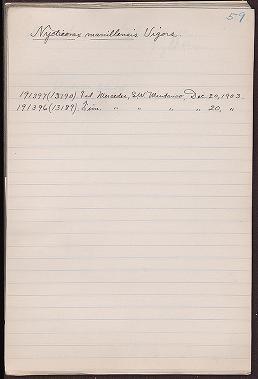 59
Nycticorax manillensis Vigors.
191397(13190). Fel. Mercedes, S.W. Mindanao, Dec. 20, 1903.
191396(13189). Fem. " " " " 20, "